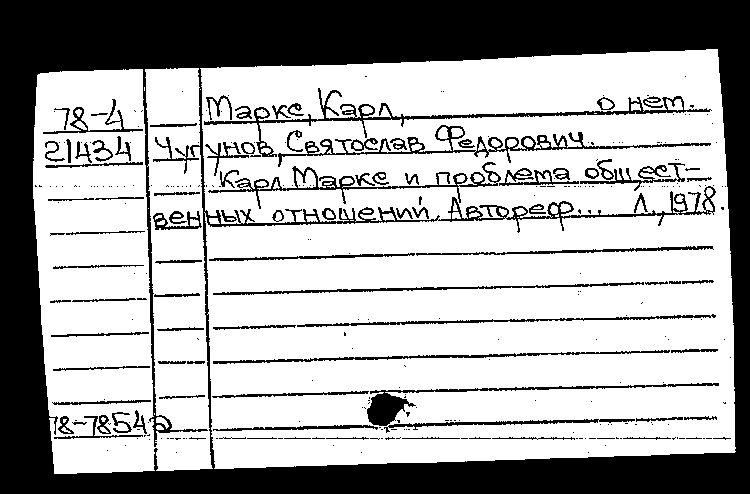 78-4 Маркс, Карл, о нем.
21434 Чугунов, Святослав Федорович.
Карл Маркс и проблема общест-
венных отношений. Автореф... Л., 1978.
78-7854а